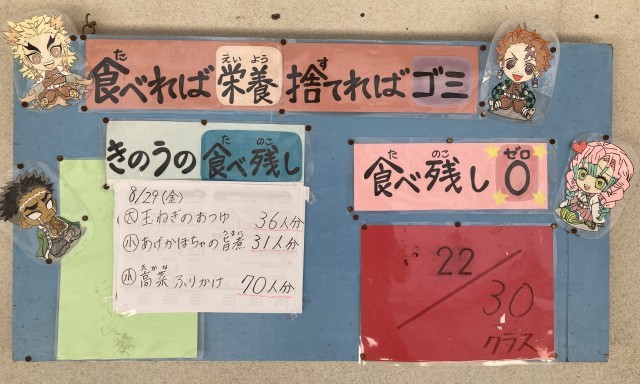 食べれば栄養 捨てればゴミ
きのうの食べ残し
8/29(金)
大 玉ねぎのおつゆ 36人分
小 あげかぼちゃの旨煮 31人分
小 高菜ふりかけ 70人分
食べ残し0
22/30
クラス